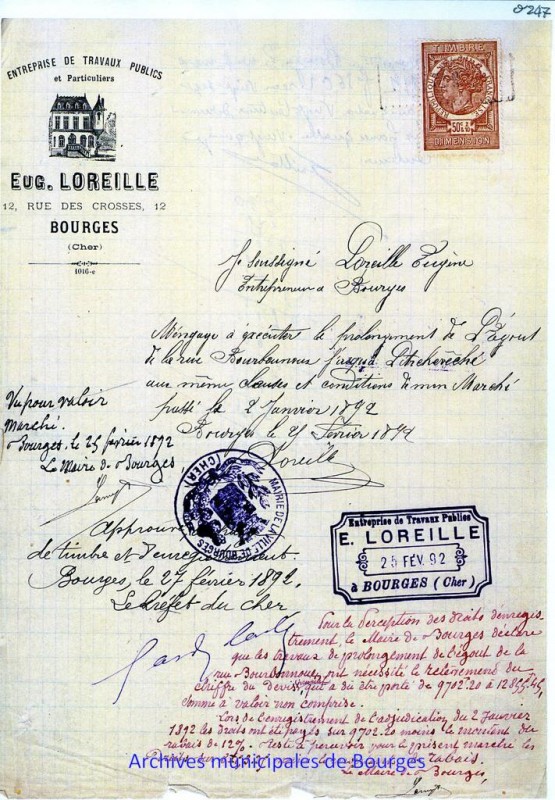 247
ENTREPRISE DE TRAVAUX PUBLICS
et Particuliers
EUG. LOREILLE
12, RUE DES CROSSES, 12
BOURGES
(Cher)
1016-c
TIMBRE
50c
DIMENSION
Je soussigné Loreille Eugène
Entrepreneur à Bourges
M'engage à exécuter le prolongement de l'Egout
de la rue Bourbounoux jusqu'à
aux même Clauses et conditions de mon Marché
passé le 2 Janvier 1892
Bourges le 25 Février 1892
Loreille
Vu pour valoir
Marché.
Bourges, le 25 février 1892
Le Maire de Bourges
MAIRIE DE LA VILLE DE BOURGES
(CHER)
Entreprise de Travaux Publics
E. LOREILLE
25 FEV. 92
à BOURGES (Cher)
Approuvé
de timbre et d'enregistrement.
Bourges, le 27 février 1892.
Le Préfet du Cher
Pour la perception des droits d'enregis
trement, le Maire de Bourges déclare
que les travaux de prolongement de l'égout de la
rue Bourbonnoux, ont nécessité le relèvement du
chiffre du Devis, qui a dû être porté de 9702.20 à 12855.45,
somme à valoir non comprise.
Lors de l'enregistrement de l'adjudication du 2 Janvier
1892 les droits ont été payés sur 9702.20 moins le montant du
rabais de 12%. Reste à percevoir pour le présent marché les
Droits sur rabais.
Le Maire de Bourges,
Archives municipales de Bourges